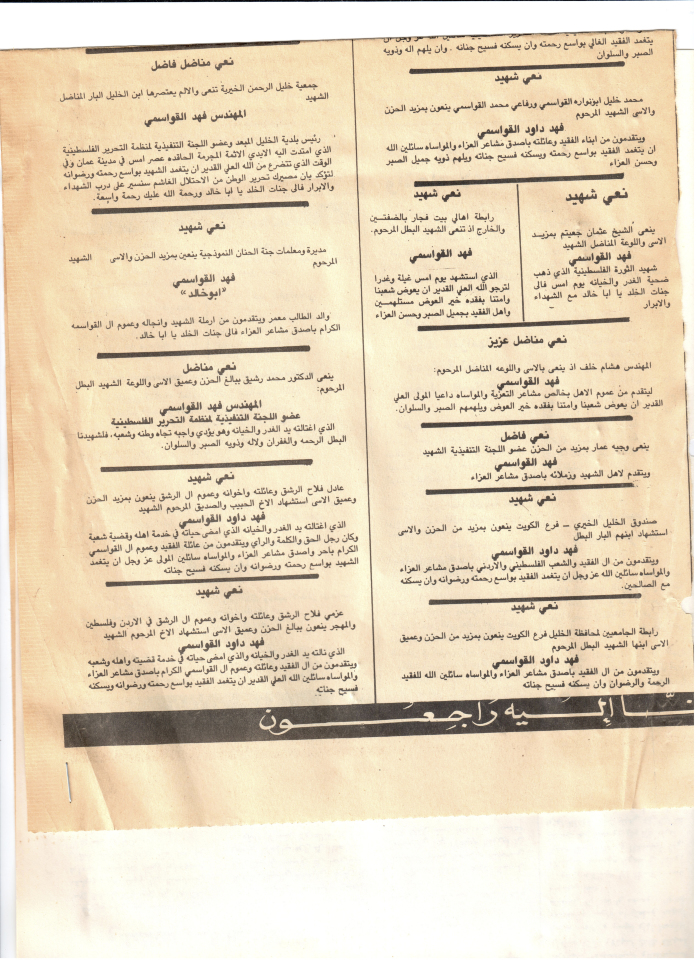 يتغمد الفقيد الغالي بواسع رحمته وان يسكنه فسيح جنانه . وان يلهم اله وذويه
الصبر والسلوان
نعي شهيد
محمد خليل ابونواره القواسمي ورفاعي محمد القواسمي ينعون بمزيد الحزن
والاسى الشهيد المرحوم
فهد داود القواسمي
ويتقدمون من ابناء الفقيد وعائلته بأصدق مشاعر العزاء والمواساه سائلين الله
ان يتغمد الفقيد بواسع رحمته ويسكنه فسيح جناته ويلهم ذويه جميل الصبر
وحسن العزاء
نعي شهيد
ينعى الشيخ عثمان جعيتم بمزيد
الاسى واللوعة المناضل الشهيد
فهد القواسمي
شهيد الثورة الفلسطينية الذي ذهب
ضحية الغدر والخيانه يوم امس فالى
جنات الخلد يا ابا خالد مع الشهداء
والابرار
نعي شهيد
رابطة اهالي بيت فجار بالضفتين
والخارج اذ تنعى الشهيد البطل المرحوم.
فهد القواسمي
الذي استشهد يوم امس غيلة وغدرا
لنرجو الله العلي القدير ان يعوض شعبنا
وامتنا بفقده خير العوض مستلهمين
واهل الفقيد بجميل الصبر وحسن العزاء
نعي مناضل عزيز
المهندس هشام خلف اذ ينعي بالاسى واللوعه المناضل المرحوم:
فهد القواسمي
ليتقدم من عموم الاهل بخالص مشاعر التعزية والمواساه داعيا المولى العلي
القدير ان يعوض شعبنا وامتنا بفقده خير العوض ويلهمهم الصبر والسلوان.
نعي فاضل
ينعى وجيه عمار بمزيد من الحزن عضو اللجنة التنفيذية الشهيد
فهد القواسمي
ويتقدم لاهل الشهيد وزملائه بأصدق مشاعر العزاء
نعي شهيد
صندوق الخليل الخيري – فرع الكويت ينعون بمزيد من الحزن والاسى
استشهاد ابنهم البار البطل
فهد داود القواسمي
ويتقدمون من ال الفقيد والشعب الفلسطيني والاردني بأصدق مشاعر العزاء
والمواساه سائلين الله عز وجل ان يتغمد الفقيد بواسع رحمته ورضوانه وان يسكنه
مع الصالحين.
نعي شهيد
رابطة الجامعيين لمحافظة الخليل فرع الكويت ينعون بمزيد من الحزن وعميق
الاسى ابنها الشهيد البطل المرحوم
فهد داود القواسمي
ويتقدمون من ال الفقيد بأصدق مشاعر العزاء والمواساه سائلين الله للفقيد
الرحمة والرضوان وان يسكنه فسيح جناته
نعي مناضل فاضل
جمعية خليل الرحمن الخيرية تنعى والالم يعتصرها ابن الخليل البار المناضل
الشهيد
المهندس فهد القواسمي
رئيس بلدية الخليل المبعد وعضو اللجنة التنفيذية لمنظمة التحرير الفلسطينية
الذي امتدت اليه الايدي الاثمة المجرمة الحاقده عصر امس في مدينة عمان وفي
الوقت الذي تتضرع من الله العلي القدير ان يتغمد الشهيد بواسع رحمته ورضوانه
لنؤكد بان مصيرك تحرير الوطن من الاحتلال الغاشم سنسير على درب الشهداء
والابرار فالى جنات الخلد يا ابا خالد ورحمة الله عليك رحمة واسعة.
نعي شهيد
مديرة ومعلمات جنة الحنان النموذجية ينعين بمزيد الحزن والاسى الشهيد
المرحوم
فهد القواسمي
«ابوخالد»
والد الطالب معمر ويتقدمون من ارملة الشهيد وانجاله وعموم ال القواسمه
الكرام بأصدق مشاعر العزاء فالى جنات الخلد يا ابا خالد.
نعي مناضل
ينعي الدكتور محمد رشيق ببالغ الحزن وعميق الاسى واللوعة الشهيد البطل
المرحوم:
المهندس فهد القواسمي
عضو اللجنة التنفيذية لمنظمة التحرير الفلسطينية
الذي اغتالته يد الغدر والخيانه وهو يؤدي واجبه تجاه وطنه وشعبه، فلشهيدنا
البطل الرحمه والغفران ولاله وذويه الصبر والسلوان.
نعي شهيد
عادل فلاح الرشق وعائلته واخوانه وعموم ال الرشق ينعون بمزيد الحزن
وعميق الاسى استشهاد الاخ الحبيب والصديق المرحوم الشهيد
فهد داود القواسمي
الذي اغتالته يد الغدر والخيانه الذي امضى حياته في خدمة اهله وقضية شعبة
وكان رجل الحق والكلمة والرأي ويتقدمون من عائلة الفقيد وعموم ال القواسمي
الكرام بأحر واصدق مشاعر العزاء والمواساه سائلين المولى عز وجل ان يتغمد
الشهيد بواسع رحمته ورضوانه وان يسكنه فسيح جناته
نعي شهيد
عزمي فلاح الرشق وعائلته واخوانه وعموم ال الرشق في الاردن وفلسطين
والمهجر ينعون ببالغ الحزن وعميق الاسى استشهاد الاخ المرحوم الشهيد
فهد داود القواسمي
الذي نالته يد الغدر والخيانه والذي امضى حياته في خدمة قضيته واهله وشعبه
ويتقدمون من ال الفقيد وعائلته وعموم ال القواسمي الكرام بأصدق مشاعر العزاء
والمواساه سائلين الله العلي القدير ان يتغمد الفقيد بواسع رحمته ورضوانه ويسكنه
فسيح جناته
نا إليه راجعون